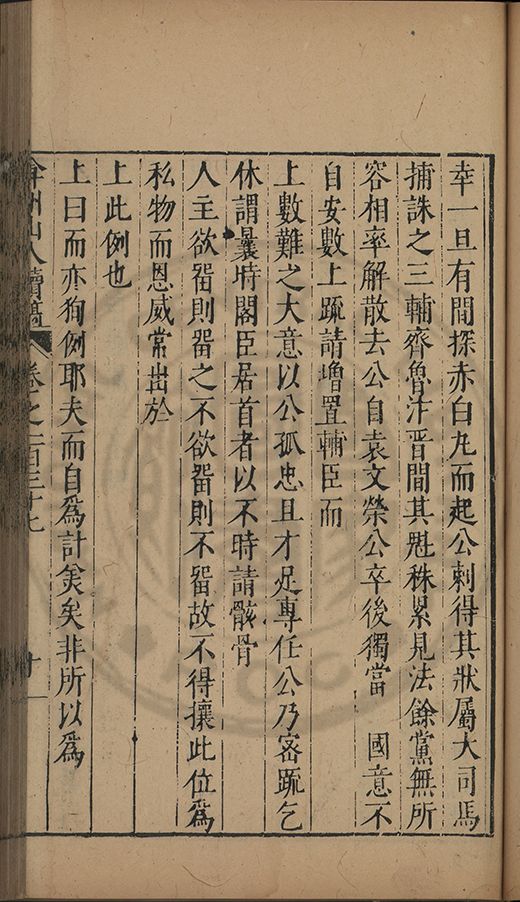 幸一旦有間探赤白丸而起公刺得其狀屬大司馬
捕誅之三輔齊魯汴晋間其魁株累見法餘黨無所
容相率解散去公自袁文榮公卒後獨當 國意不
自安數上䟽請增置輔臣而
上數難之大意以公孤忠且才足專任公乃密䟽乞
休謂曩時閣臣居首者以不時請骸骨
人主欲畱則畱之不欲畱則不畱故不得攘此位爲
私物而恩威常出於
上此例也
上曰而亦狥例耶夫而自爲計矣矣非所以爲
弇州山人續稿 卷之一百三十七 十一